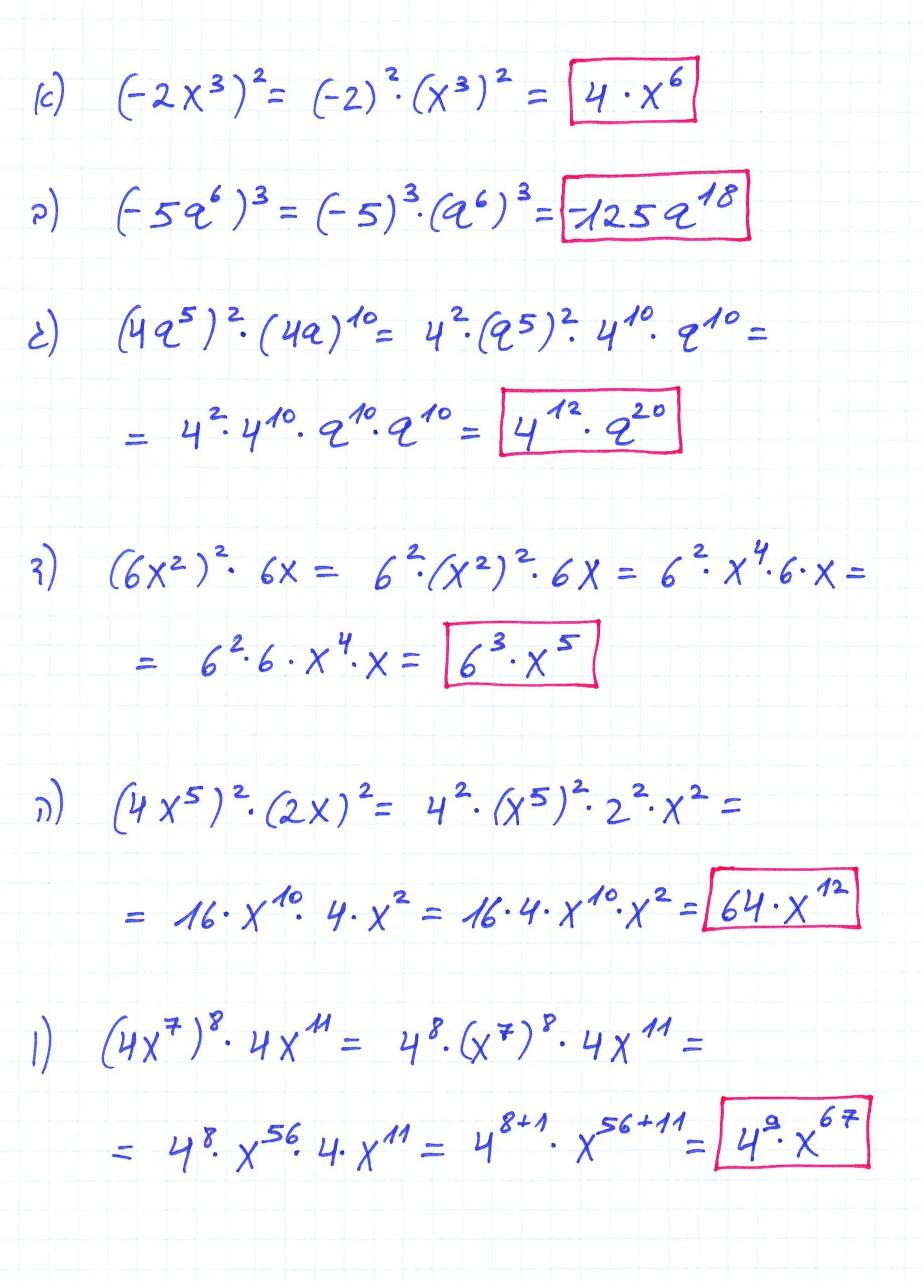 א) (-2x³)² = (-2)²·(x³)² = 4·x⁶
ב) (-5a⁶)³ = (-5)³·(a⁶)³ = -125a¹⁸
ג) (4a⁵)²·(4a)¹⁰ = 4²·(a⁵)²·4¹⁰·a¹⁰ =
= 4²·4¹⁰·a¹⁰·a¹⁰ = 4¹²·a²⁰
ד) (6x²)²·6x = 6²·(x²)²·6x = 6²·x⁴·6·x =
= 6²·6·x⁴·x = 6³·x⁵
ה) (4x⁵)²·(2x)² = 4²·(x⁵)²·2²·x² =
= 16·x¹⁰·4·x² = 16·4·x¹⁰·x² = 64·x¹²
ו) (4x⁷)⁸·4x¹¹ = 4⁸·(x⁷)⁸·4x¹¹ =
= 4⁸·x⁵⁶·4·x¹¹ = 4⁸⁺¹·x⁵⁶⁺¹¹ = 4⁹·x⁶⁷